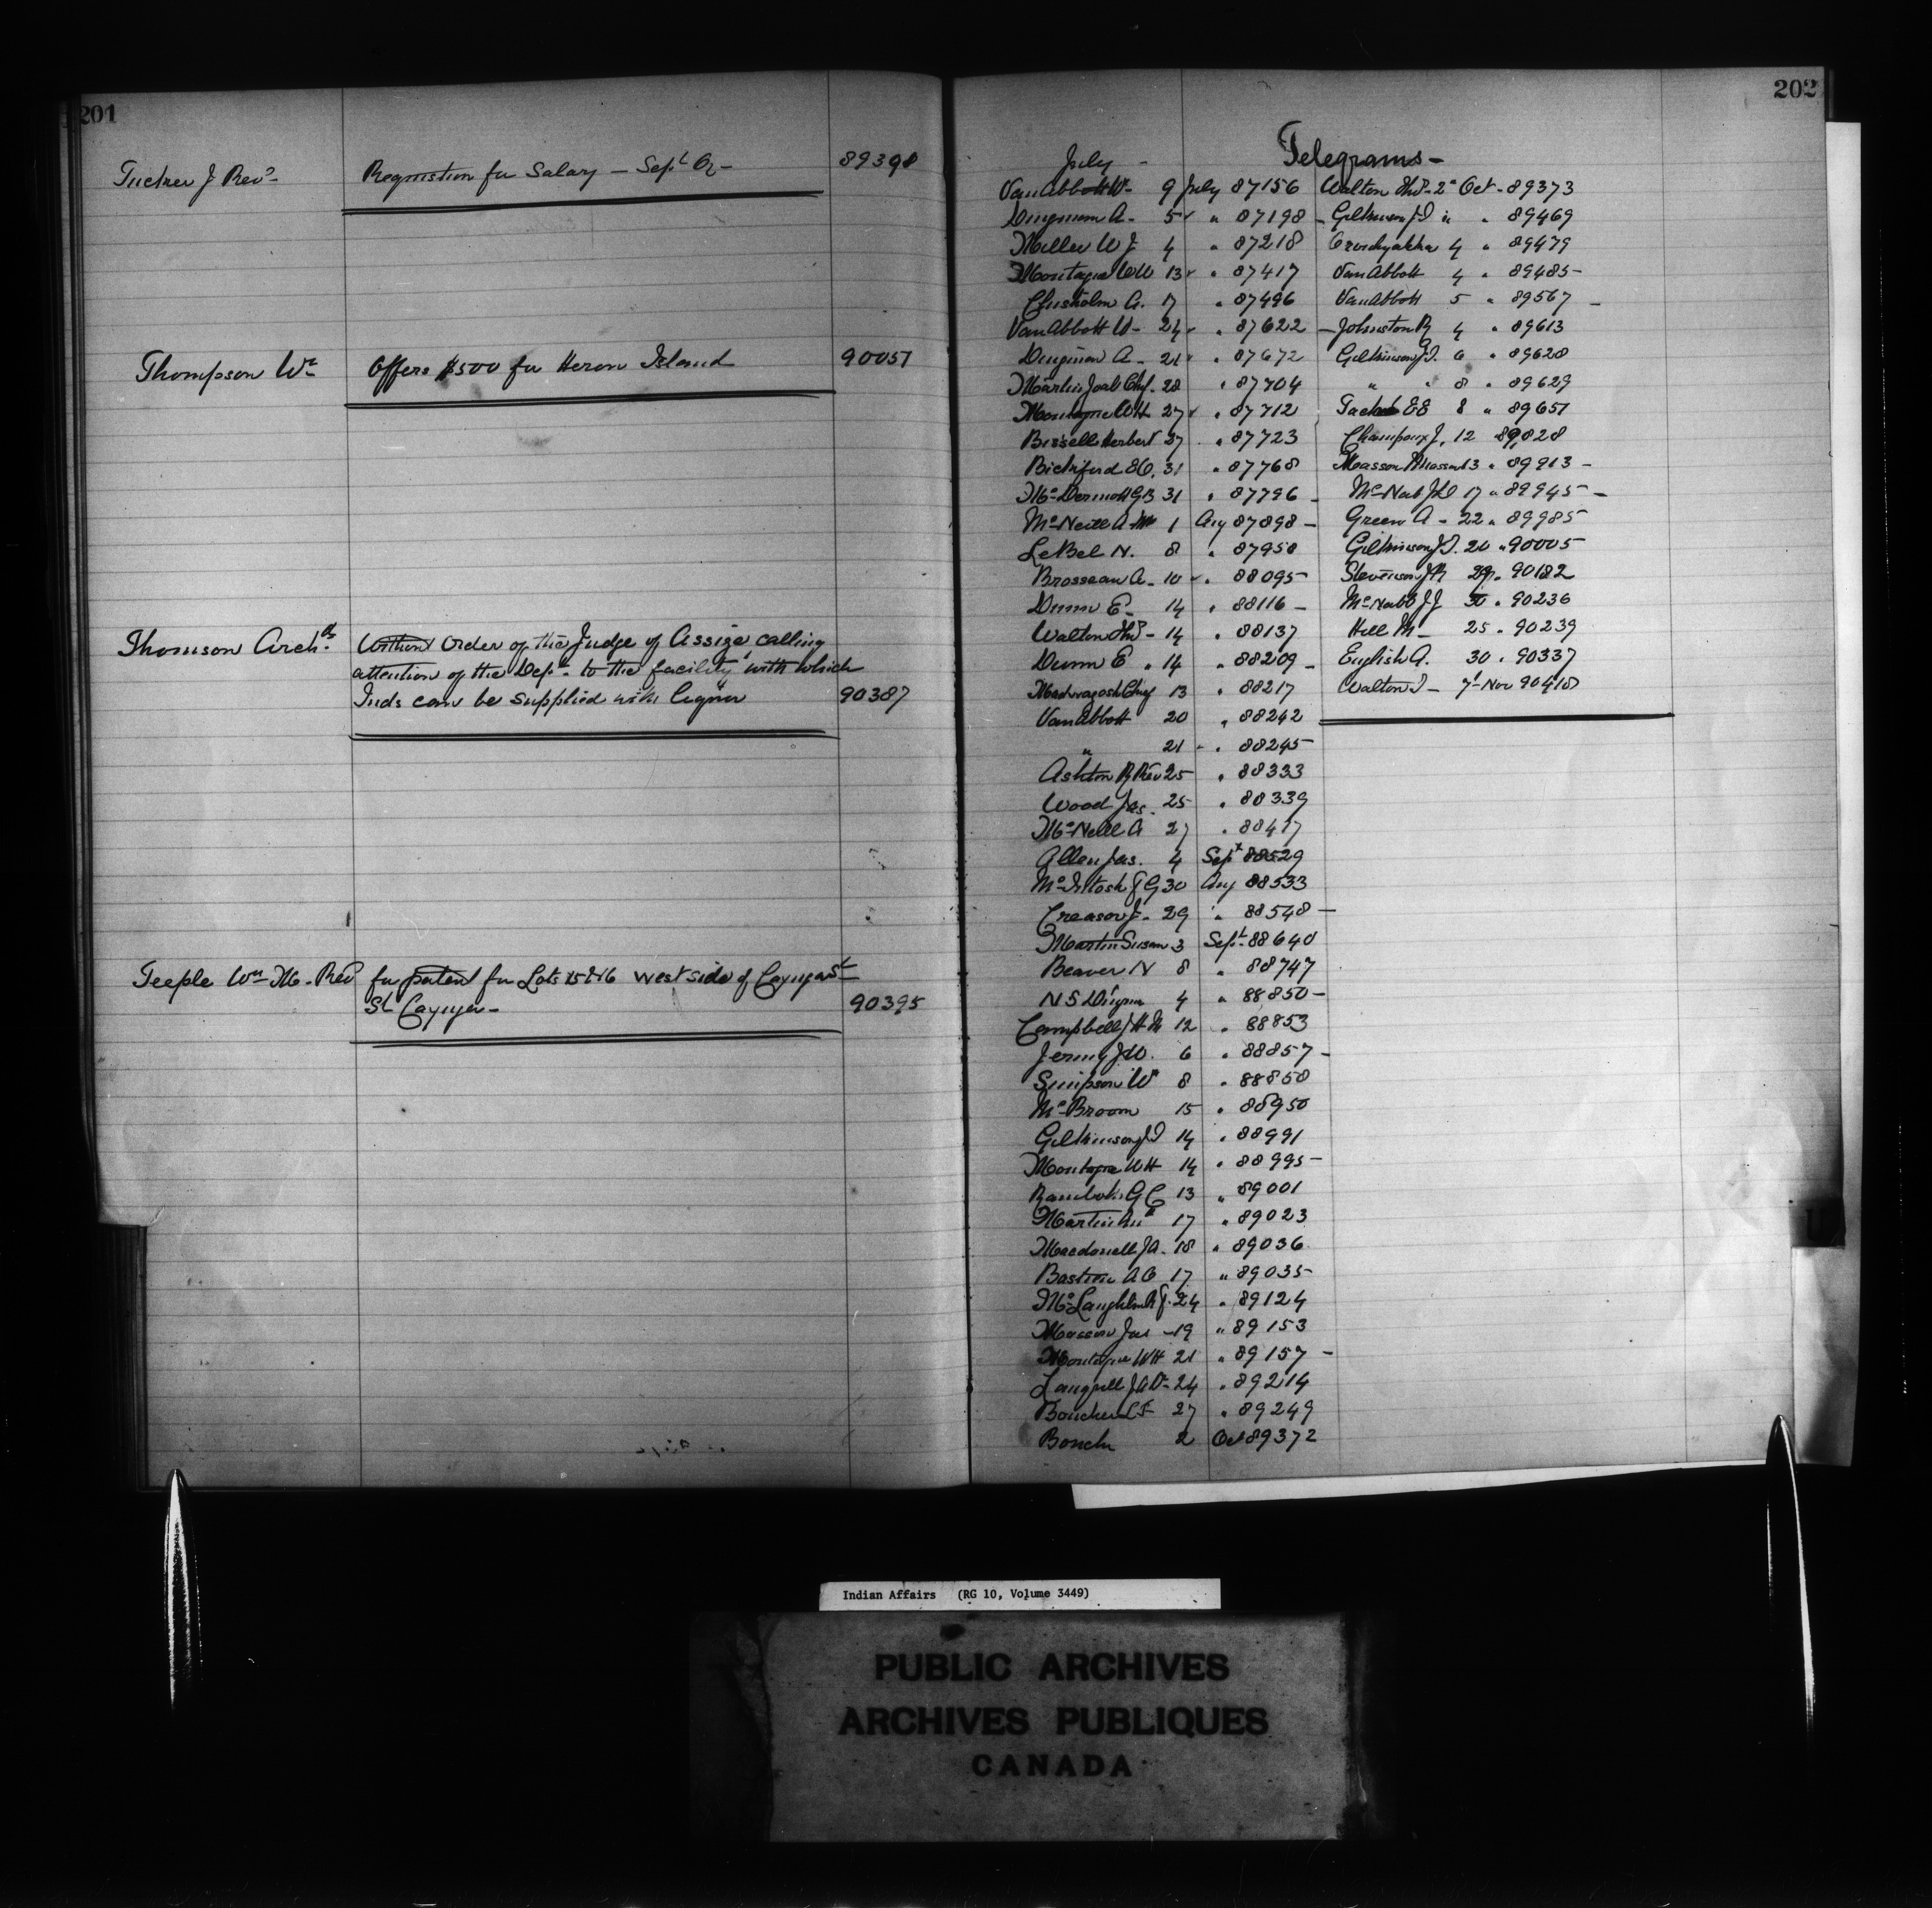 201
Tucker J Revd - Requisition for Salary - Sept Qr - 89398
Thompson Wm Offers $500 for Heron Island 90051
Thomson Archd Order of the Judge of Assize, calling
attention of the Dept. to the facility with which
Inds can be supplied with liquor 90387
Teeple Wm M. Revd for patent for Lots 15 & 16 west side of Cayuga St
St Cayuga - 90395
202
Telegrams -
July -
Van Abbott W - 9 July 87156
Dingman A - 5 " 87198 -
Miller W J 4 " 87218
Montague W H 13 " 87417
Chisholm A. 17 " 87496
Van Abbott W - 24 " 87622 -
Dingman A - 21 " 87672
Martin Joab Chf. 28 " 87704
Montague W H 27 " 87712
Bissell Herbert 27 " 87723
Bickford E O. 31 " 87768
McDermott G B 31 " 87796 -
McNeill A 1 Aug 87898 -
LeBel N. 8 " 87958
Brosseau A - 10 " 88095
Dunn E - 14 " 88116 -
Walton Thos - 14 " 88137
Dunn E " 14 " 88209 -
Chief 13 " 88217
Van Abbott 20 " 88242
" 21 " 88245
Ashton R Rev 25 " 88333
Wood Jas. 25 " 88339
McNeill A 27 " 88417
Allen Jas. 4 Sept 88529
McIntosh J G 30 Aug 88533
Creasor J - 29 " 88548 -
Martin Susan 3 Sept 88640
Beaver N 8 " 88747
N S Dingman 4 " 88850 -
Campbell J H M 12 " 88853
Jermy J W. 6 " 88857 -
Simpson Wm 8 " 88858
McBroom 15 " 88950
Gilkinson J T 14 " 88991
Montague W H 14 " 88995 -
G C 13 " 89001
Martin 17 " 89023
Macdonell J A - 18 " 89036
Bastien A O 17 " 89035
McLaughlin R J. 24 " 89124
Masson Jas - 19 " 89153
Montague W H 21 " 89157 -
Langrell J A Dr - 24 " 89214
Boucher L F 27 " 89249
Bouch 2 Oct 89372
Walton Thos - 2d Oct - 89373
Gilkinson J T " " 89469
Oronhyatekha 4 " 89479
Van Abbott 4 " 89485 -
Van Abbott 5 " 89567 -
Johnston R 4 " 89613
Gilkinson J T. 6 " 89628
" " 8 " 89629
E E 8 " 89651
Champoux J. 12 89828
Masson 13 " 89913 -
McNab J D 17 " 89945 -
Green A - 22 " 89985
Gilkinson J T. 20 " 90005
Stevenson J R 29 " 90182
McNabb J J 30 " 90236
Hill M - 25 " 90239
English A. 30 " 90337
Walton T - 7t Nov 90418
Indian Affairs (RG 10, Volume 3449)
PUBLIC ARCHIVES
ARCHIVES PUBLIQUES
CANADA